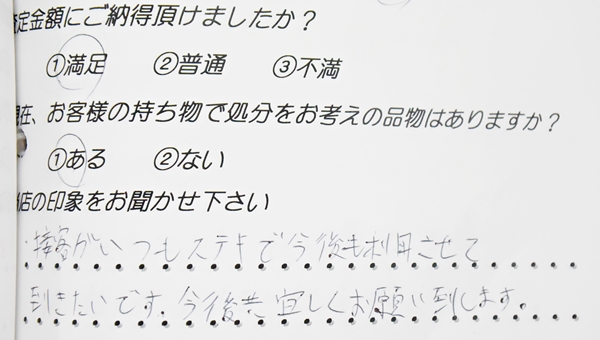 定金額にご納得頂けましたか?
①満足 ②普通 ③不満
在、お客様の持ち物で処分をお考えの品物はありますか?
①ある ②ない
店の印象をお聞かせ下さい
・接客がいつもステキで今後も利用させて
到きたいです。今後共宜しくお願い到します。